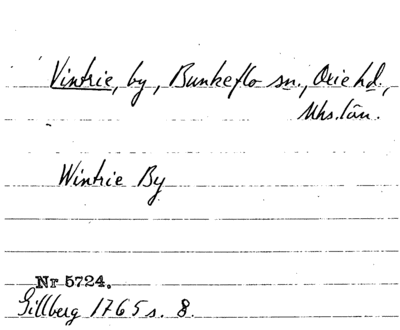 Vintrie, by, Bunkeflo sn., Oxie hd.,
Mhs. län.
Wintrie By
Nr 5724.
Gillberg 1765 s. 8.